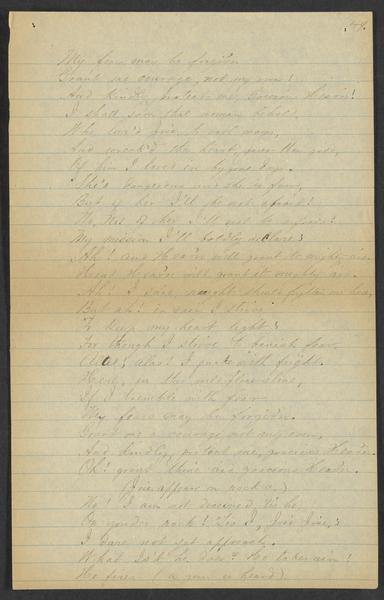 My fears may be forgiven
Grant me courage, not my own!
And kindly protect me, Gracious Heaven!
I shall soon that woman behold,
Who
And wreck'd the heart,
Of him I loved in bygone days.
She's dangerous and she is fair,
But of her I'll be not afraid!
No, No! Of her I'll not be afraid!
My mission I'll boldly declare;
Ah! and Heaven will grant its mighty aid.
Great Heaven will grant its mighty aid.
Ah! I said, naught should frighten me here,
But ah! in vain I strive
To keep my heart light;
For though I strive to banish fear
Alas! alas! I quake with fright.
Here, in this
If I tremble with fear
My fears may be forgiven.
Grant me a courage not my own,
And kindly, protect me, gracious Heaven.
Oh! grant thine aid gracious Heaven.
(José appears on rock
No! I am not deceived 'tis he,
On yonder rock! 'tis I, José José,
I dare not yet approach.
What Is't he does? He takes aim!
He fires (a gun is heard)